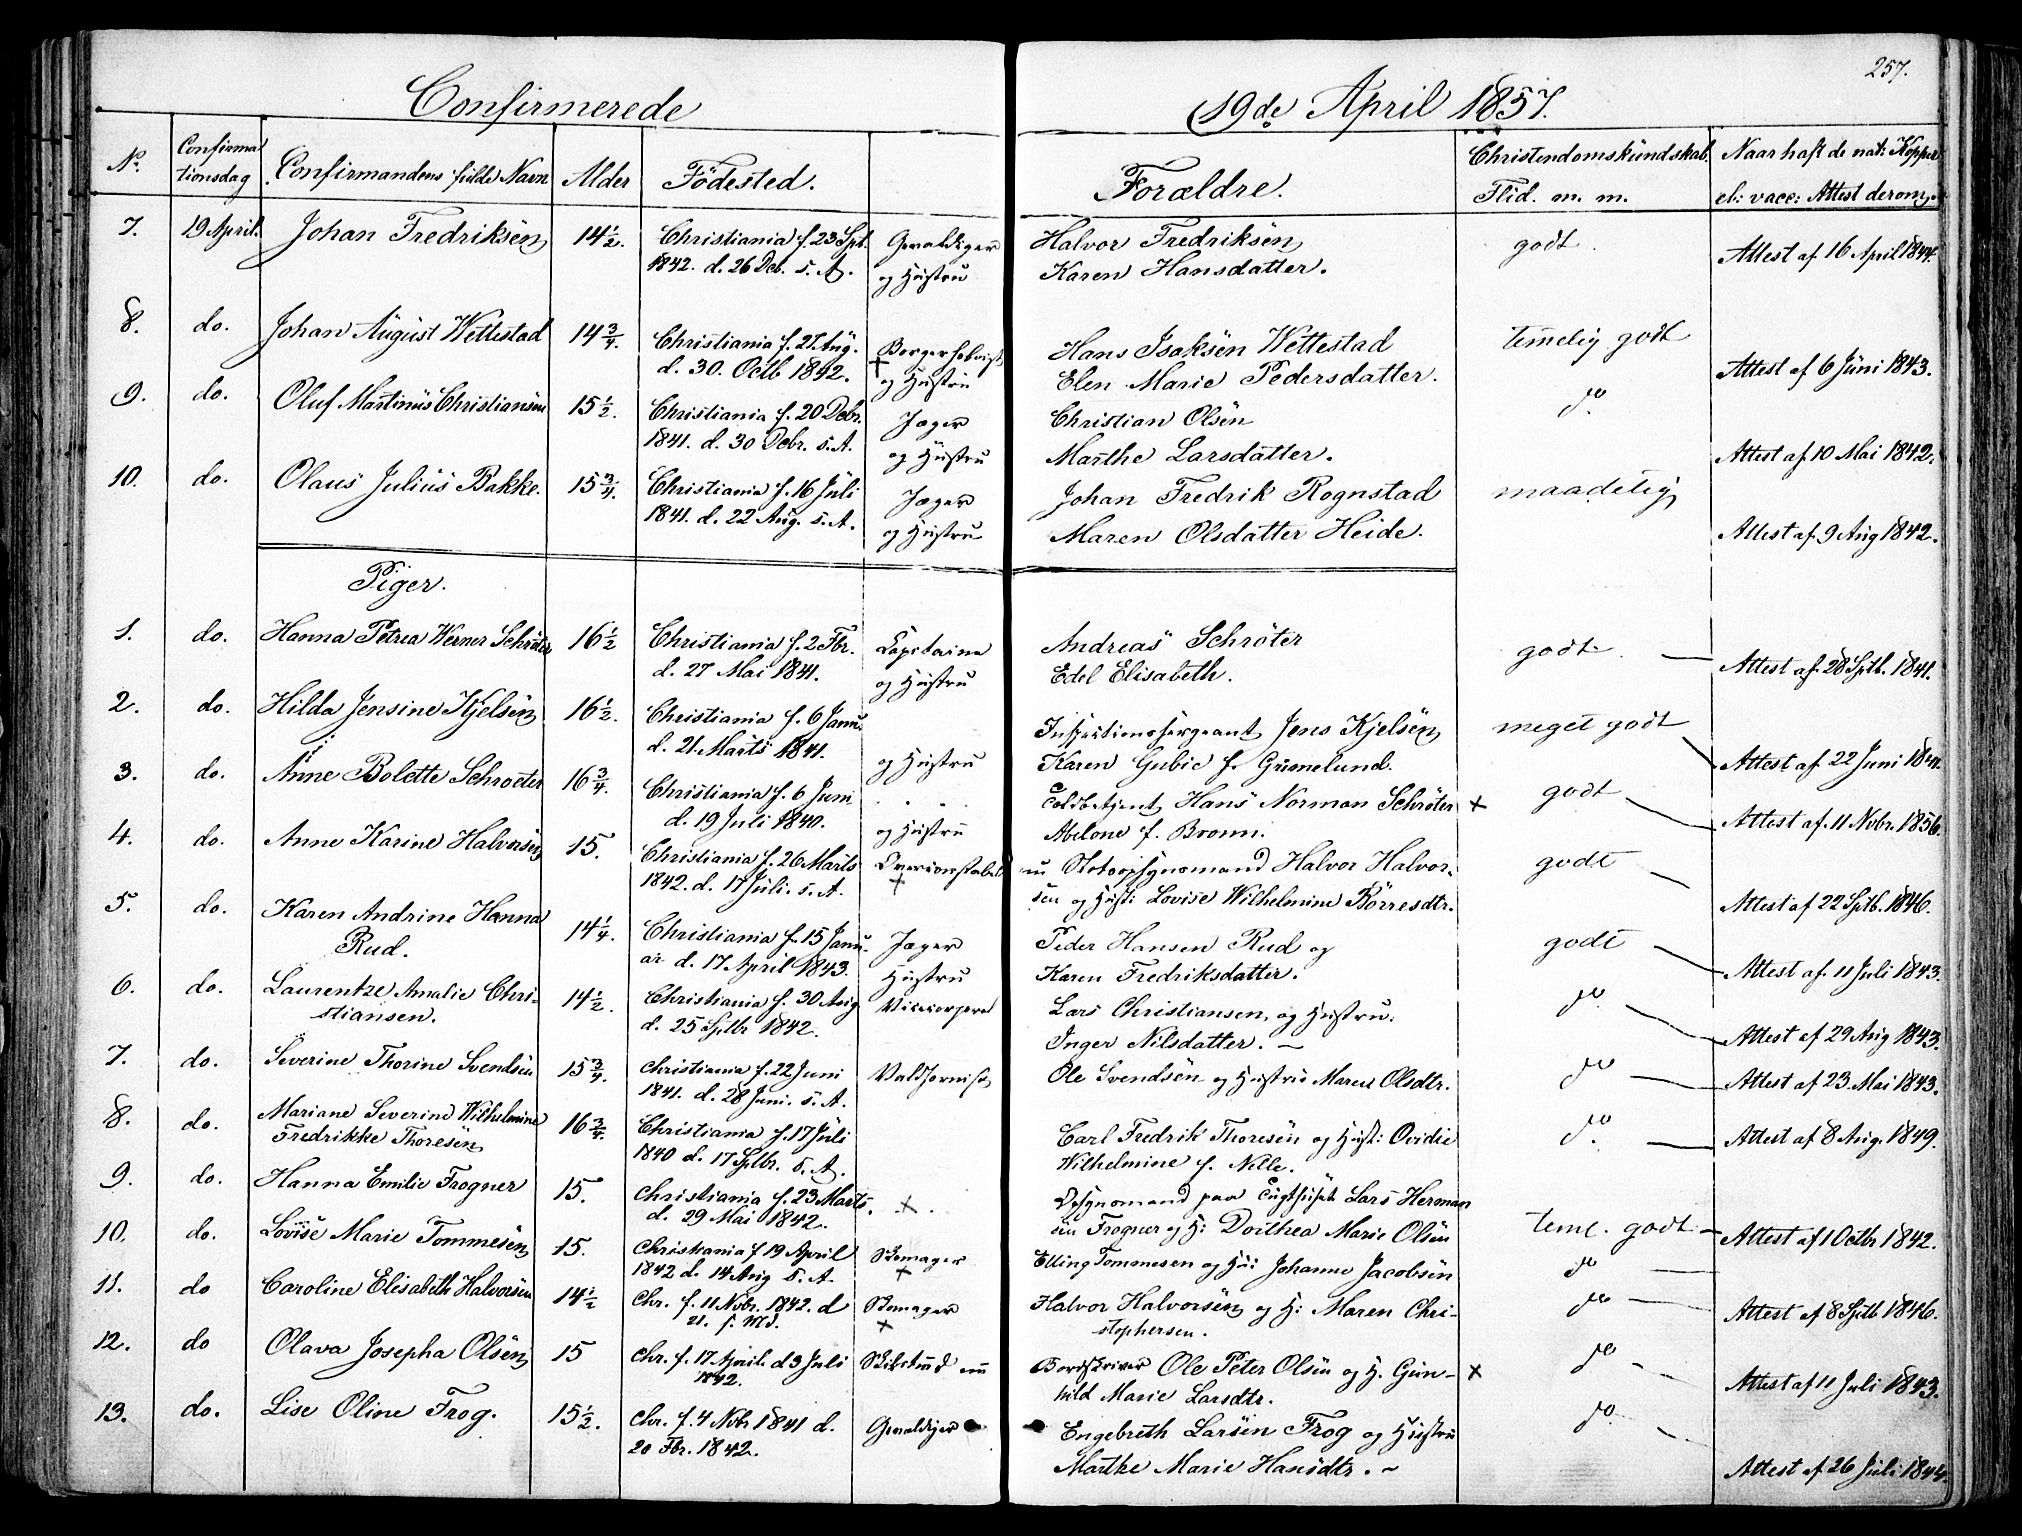 257.
Confirmerede 19de April 1857.
No. Confirmationsdag Confirmandens fulde Navn Alder Födested. Forældre. Christendomskundskab. Flid. m. m. Naar haft de nat: Kopper el: vacc: Attest derom.
7. 19 April. Johan Fredriksen 14 1/2. Christiania f. 23 Spt. Gevaldiger Halvor Fredriksen godt.
1842. d. 26 Deb. s. A. og Hustru Karen Hansdatter. Attest af 16 April 1844.
8. do. Johan August Wettestad 14 3/4. Christiania f. 27 Aug. Hans Isaksen Wettestad temelig godt
d. 30. Octb 1842. og Hustru Elen Marie Pedersdatter. Attest af 6 Juni 1843.
9. do. Oluf Martinus Christiansen 15 1/2. Christiania f. 20 Debr. Jæger Christian Olsen do
1841. d. 30 Debr. s. A. og Hustru Marthe Larsdatter. Attest af 10 Mai 1842.
10. do. Olaus Julius Bakke. 15 3/4. Christiania f. 16 Juli Jæger Johan Fredrik Rognstad maadelig
1841. d. 22 Aug. s. A. og Hustru Maren Olsdatter Heide. Attest af 9 Aug 1842.
Piger.
1. do. Hanna Petrea Werner Schröter 16 1/2 Christiania f. 2 Fbr. Capitaine Andreas Schröter godt
d. 27 Mai 1841. og Hustru Edel Elisabeth. Attest af 28 Sptb. 1841.
2. do. Hilda Jensine Kjelsen 16 1/2. Christiania f. 6 Janu. Inspectionssergeant Jens Kjelsen meget godt
d. 21 Marts 1841. og Hustru Karen Gubie f. Grimelund. Attest af 22 Juni
3. do. Anne Bolette Schroeter 16 3/4. Christiania f. 6 Juni Toldbetjent Hans Norman Schröter + godt
d. 19 Juli 1840. og Hustru Abelone f. Bronn. Attest af. 11 Nvbr. 1856.
4. do. Anne Karine Halvorsen 15. Christiania f. 26 Marts Overconstabel Halvor Halvor- godt
1842. d. 17 Juli. s. A. + sen og Hust: Lovise Wilhelmine Börresdtr. Attest af 22 Sptb. 1846.
5. do. Karen Andrine Hanna 14 1/4. Christiania f. 15 Janu- Jæger Peder Hansen Rud og godt
Rud. ar d. 17 April 1843. Hustru Karen Fredriksdatter. Attest af. 11 Juli 1843.
6. do. Laurentze Amalie Chri- 14 1/2. Christiania f. 30 Aug Vicecorporal Lars Christiansen, og Hustru. do
stiansen. d. 25 Sptbr 1842. Inger Nilsdatter. Attest af 29 Aug 1843.
7. do. Severine Thorine Svendsen 15 3/4. Christiania f. 22 Juni Valdhornist Ole Svendsen og Hustru Maren Olsdtr. do Attest af 23. Mai 1843.
1841. d. 28 Juni. s. A.
8. do. Mariane Severine Wilhelmine 16 3/4. Christiania f. 17 Juli Carl Fredrik Thoresen og Hust: Ovidie do Attest af 8 Aug. 1849.
Fredrikke Thoresen 1840 d. 17 Sptbr. s. A. Wilhelmine f. Nelle.
9. do. Hanna Emilie Frogner 15. Christiania f. 23 Marts. + Opsynsmand paa Tugthuset Lars Herman
d. 29 Mai 1842. Frogner og H: Dorthea Marie Olsen teml. godt Attest af 1 Octbr 1842.
10. do. Lovise Marie Tommesen 15. Christiania f 19 April Skomager Elling Tommesen og Hu: Johanne Jacobsen do
1842 d. 14 Aug s. A. +
11. do Caroline Elisabeth Halvorsen 14 1/2 Chr. f. 11 Nvbr. 1842. d Skomager Halvor Halvorsen og H: Maren Chri- do Attest af 8 Sptb 1846.
21. f. Md. + stophersen.
12. do Olava Josepha Olsen 15 Chr. f. 17 April. d 3 Juli Ole Peter Olsen og H. Gun- + do
1842. hild Marie Larsdtr. Attest af 11 Juli 1843.
13. do. Lise Oline Frog. 15 1/2. Chr. f. 4 Nvbr 1841 d. Gevaldiger Engebreth Larsen Frog og Hustru do
20 Fbr. 1842. Marthe Marie Hansdtr. Attest af 26 Juli 1844.